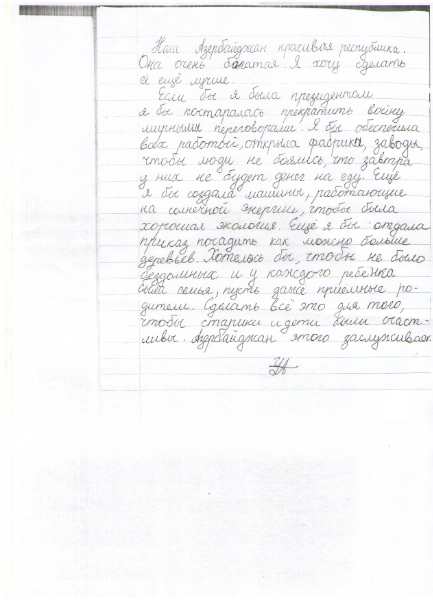 Наш Азербайджан красивая республика.
Она очень богатая. Я хочу сделать
её ещё лучше.
Если бы я была президентом
я бы постаралась прекратить войну
мирными переговорами. Я бы обеспечила
всех работой, открыла фабрики, заводы,
чтобы люди не боялись, что завтра
у них не будет денег на еду. Ещё
я бы создала машины, работающие
на солнечной энергии, чтобы была
хорошая экология. Ещё я бы отдала
приказ посадить как можно больше
деревьев. Хотелось бы, чтобы не было
бездомных и у каждого ребёнка
была семья, пусть даже приёмные ро-
дители. Сделать всё это для того,
чтобы старики и дети были счаст-
ливы. Азербайджан этого заслуживает.